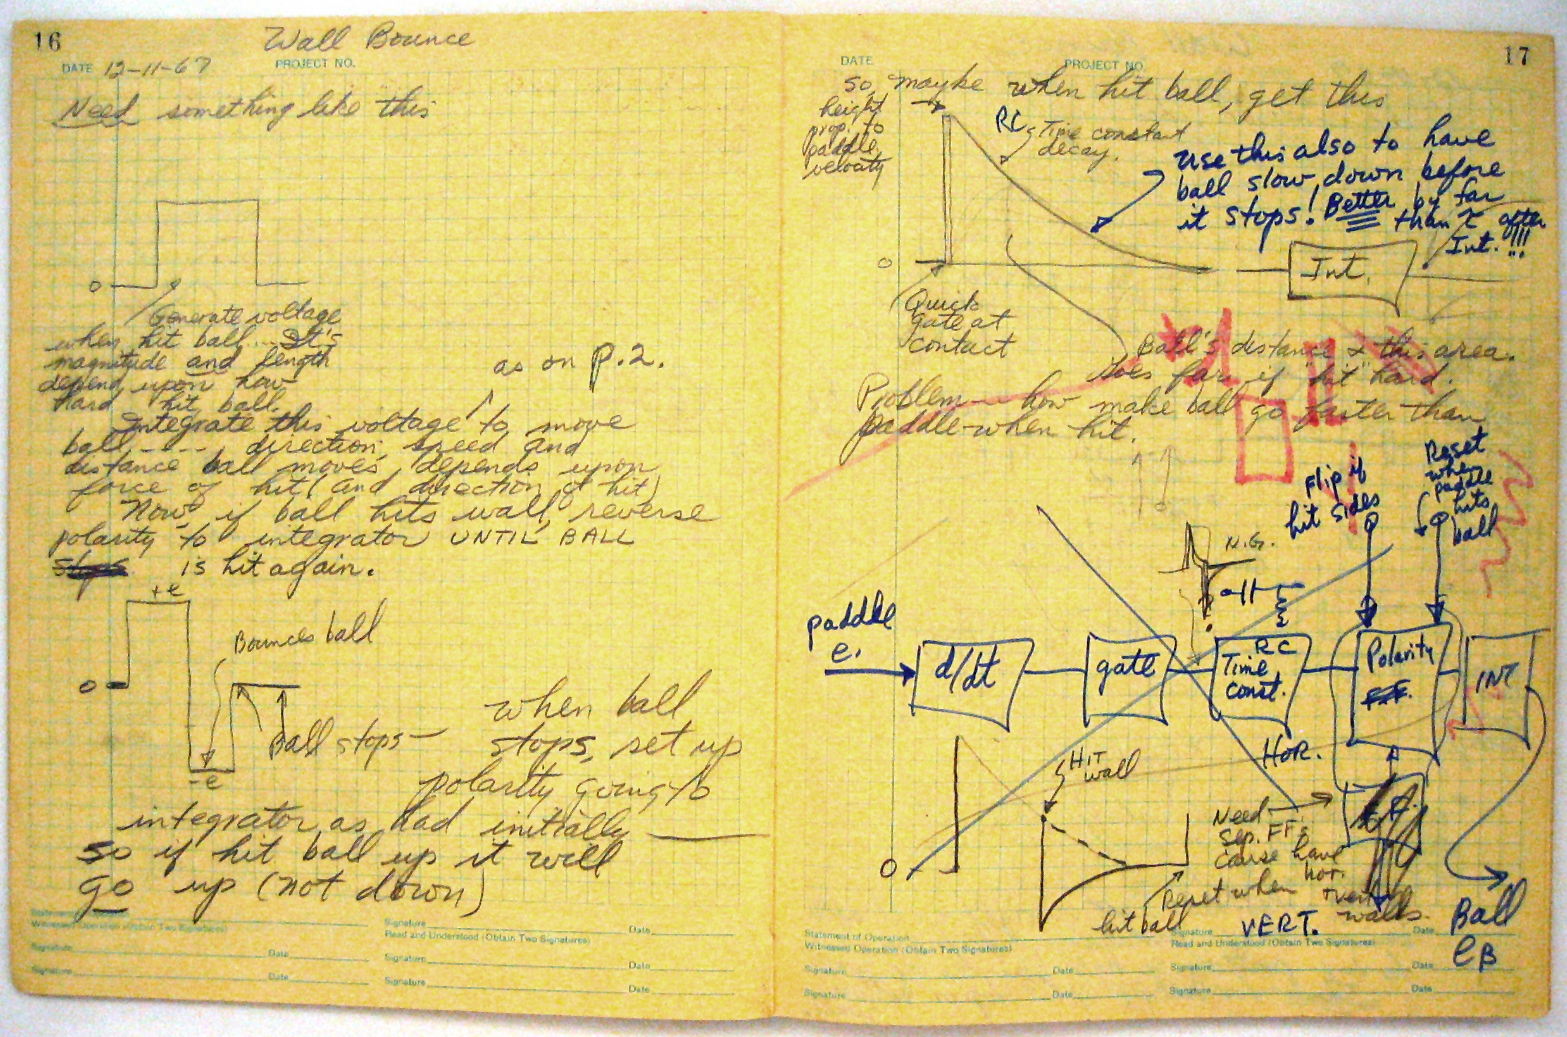 16
Wall Bounce
DATE 12-11-67 PROJECT NO.
Need something like this
0
Generate voltage
when hit ball... It's
magnitude and length
depend upon how
hard hit ball.
as on p.2.
Integrate this voltage to move
ball ---- direction, speed and
distance ball moves, depends upon
force of hit (and direction of hit)
Now if ball hits wall, reverse
polarity to integrator UNTIL BALL
is hit again.
+e
Bounces ball
0
Ball stops
-e
when ball
stops, set up
polarity going to
integrator as had initially
so if hit ball up it will
go up (not down)
Statement of Operation
Witnessed Operation (Obtain Two Signatures)
Signature Date
Signature Date
Signature Date
Read and Understood (Obtain Two Signatures)
Signature Date
Signature Date
17
DATE PROJECT NO.
so, maybe when hit ball, get this
height
prop. to
paddle
velocity
RC Time constant
decay.
Use this also to have
ball slow down before
it stops! Better by far
than τ after
Int.!!!
0
Int.
Quick
gate at
contact
Ball's distance α this area.
Goes far if hit hard.
Problem - how make ball go faster than
paddle when hit.
Flip if
hit sides
Reset
when
paddle
hits
ball
N.G.
paddle
e.
d/dt
gate
RC
Time
const.
Polarity
F.F.
INT
HOR.
Hit
wall
0
Need
sep. FFs
cause have
hor.
+ vert
walls.
F.F.
Reset when
hit ball
VERT.
Ball
eB
Statement of Operation
Witnessed Operation (Obtain Two Signatures)
Signature Date
Signature Date
Signature Date
Read and Understood (Obtain Two Signatures)
Signature Date
Signature Date